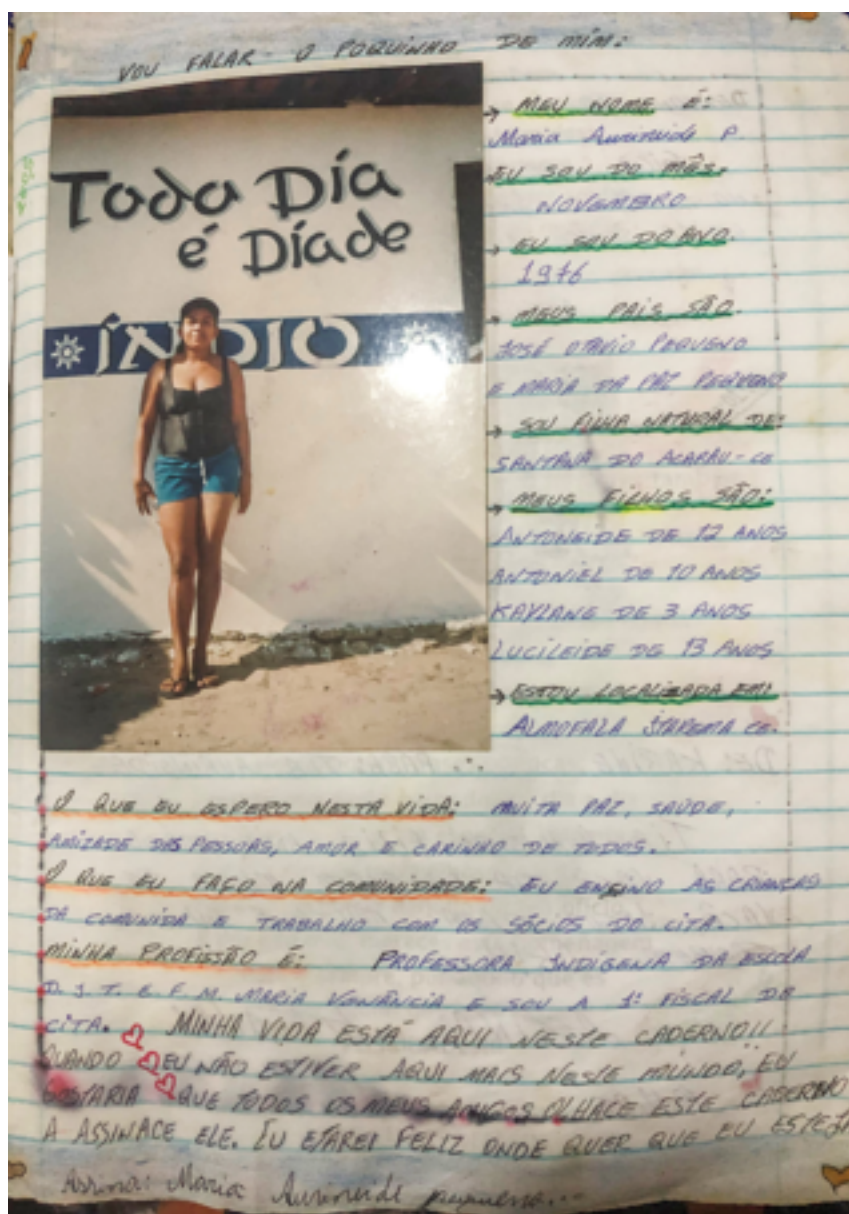 VOU FALAR - O POQUINHO DE MIM:
Todo Día
é Díade
ÍNDIO
→ MEU NOME É:
Maria Aurineide P.
EU SOU DO MÊS.
NOVEMBRO
→ EU SOU DO ANO.
1976
→ MEUS PAIS SÃO.
JOSÉ OTAVIO PEQUENO
E MARIA DA PAZ PEQUENO
→ SOU FILHA NATURAL DE:
SANTANA DO ACARÁU-CE
→ MEUS FILHOS SÃO:
ANTONEIDE DE 12 ANOS
ANTONIEL DE 10 ANOS
KAYLANE DE 3 ANOS
LUCILEIDE DE 13 ANOS
→ ESTOU LOCALIZADA EM:
ALMOFALA ITAREMA CE.
O QUE EU ESPERO NESTA VIDA: MUITA PAZ, SAÚDE,
AMIZADE DAS PESSOAS, AMOR E CARINHO DE TODOS.
O QUE EU FAÇO NA COMUNIDADE: EU ENSINO AS CRIANÇAS
DA COMUNIDA E TRABALHO COM OS SÓCIOS DO CITA.
MINHA PROFISSÃO É: PROFESSORA INDÍGENA DA ESCOLA
D. I. T. E. F. M. MARIA VENÂNCIA E SOU A 1ª FISCAL DO
CITA. MINHA VIDA ESTÁ AQUI NESTE CADERNO!!
QUANDO EU NÃO ESTIVER AQUI MAIS NESTE MUNDO, EU
GOSTARIA QUE TODOS OS MEUS AMIGOS OLHACE ESTE CADERNO
A ASSINACE ELE. EU ETAREI FELIZ ONDE QUER QUE EU ESTEJA
Assina: Maria Aurineide pequena...